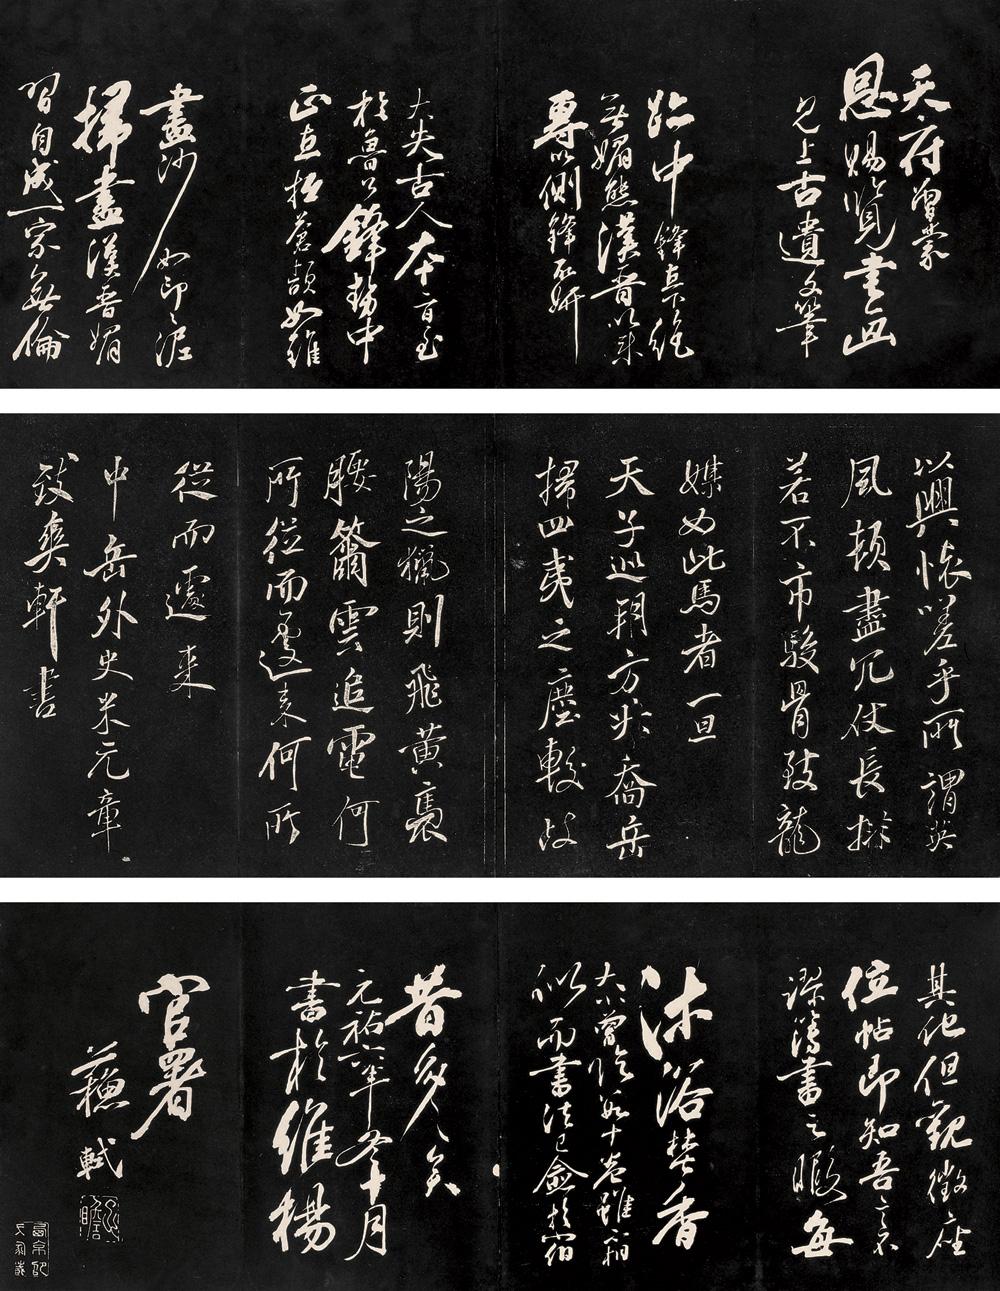 天府曾蒙
恩賜覧書画
見上古遺文筆
跡中鋒直下絶
無媚態漢晋以来
專以側鋒取妍
大失古人本旨至
於魯公鋒勢中
正直抵蒼頡如錐
畫沙如印印泥
掃盡漢晋媚
習自成一家無倫
以興懐嗟乎所謂英
風頓盡冗仗長排
若不市駿骨致龍
媒如此馬者一旦
天子巡朔方升喬岳
掃四夷之塵較岐
陽之獵則飛黄褭
腰籋雲追電何
所從而遽来何所
從而遽来
中岳外史米元章
致爽軒書
其他但觀徵座
位帖即知吾言不
謬簿書之暇每
沐浴焚香
大小曾臨數十卷雖稍
似而書法已僉於伯
昔多多矣
元祐六年冬十月
書於維楊
官署
蘇軾